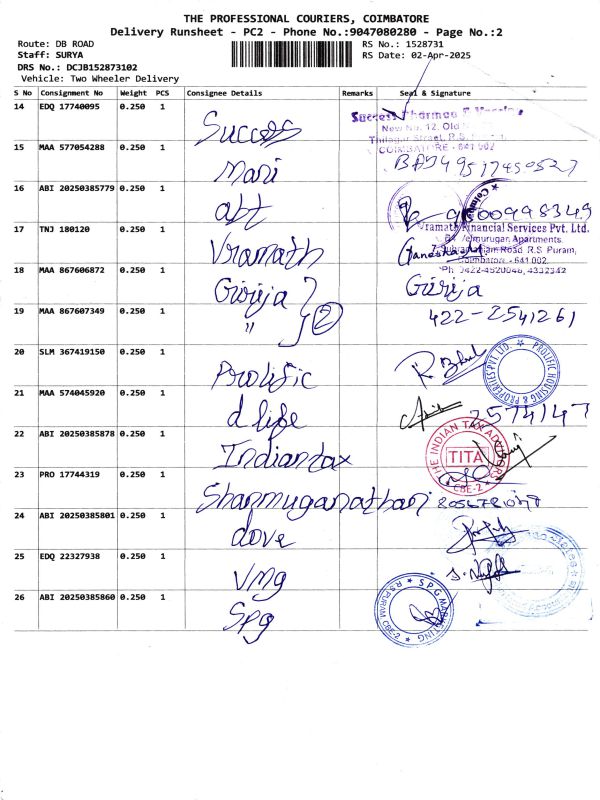 THE PROFESSIONAL COURIERS, COIMBATORE
Delivery Runsheet - PC2 - Phone No.:9047080280 - Page No.:2
Route: DB ROAD
RS No.: 1528731
Staff: SURYA
RS Date: 02-Apr-2025
DRS No.: DCJB152873102
Vehicle: Two Wheeler Delivery
S No Consignment No Weight PCS Consignee Details Remarks Seal & Signature
14 EDQ 17740095 0.250 1 Success
New No. 12, Old
COIMBATORE - 641 002
15 MAA 577054288 0.250 1 Mani
16 ABI 20250385779 0.250 1 abt
17 TNJ 180120 0.250 1 Vramath
Vramath Financial Services Pvt. Ltd.
Velmurugan Apartments.
Road R.S. Puram,
Coimbatore - 641 002.
Ph: 0422-4520046, 4332342
18 MAA 867606872 0.250 1 Girija Girija
19 MAA 867607349 0.250 1 " 2 422-2541261
20 SLM 367419150 0.250 1 Prolific
PROLIFIC HOUSING & PROPERTIES PVT LTD.
21 MAA 574045920 0.250 1 d life
22 ABI 20250385878 0.250 1 Indiantax
THE INDIAN TAX ADVISORS
TITA
CBE-2
23 PRO 17744319 0.250 1 Shanmuganathan
24 ABI 20250385801 0.250 1 dove
25 EDQ 22327938 0.250 1 Vmg
26 ABI 20250385860 0.250 1 Spg
SPG MARKETING
R S PURAM CBE-2